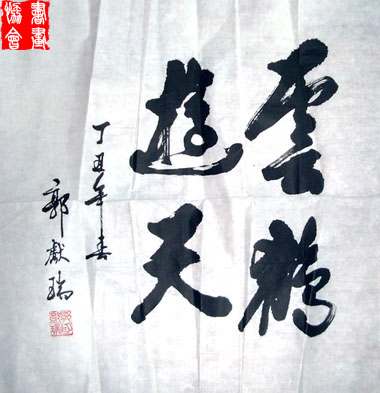 雲鶴
遊天
丁丑年春
郭獻瑞
書畫
協會